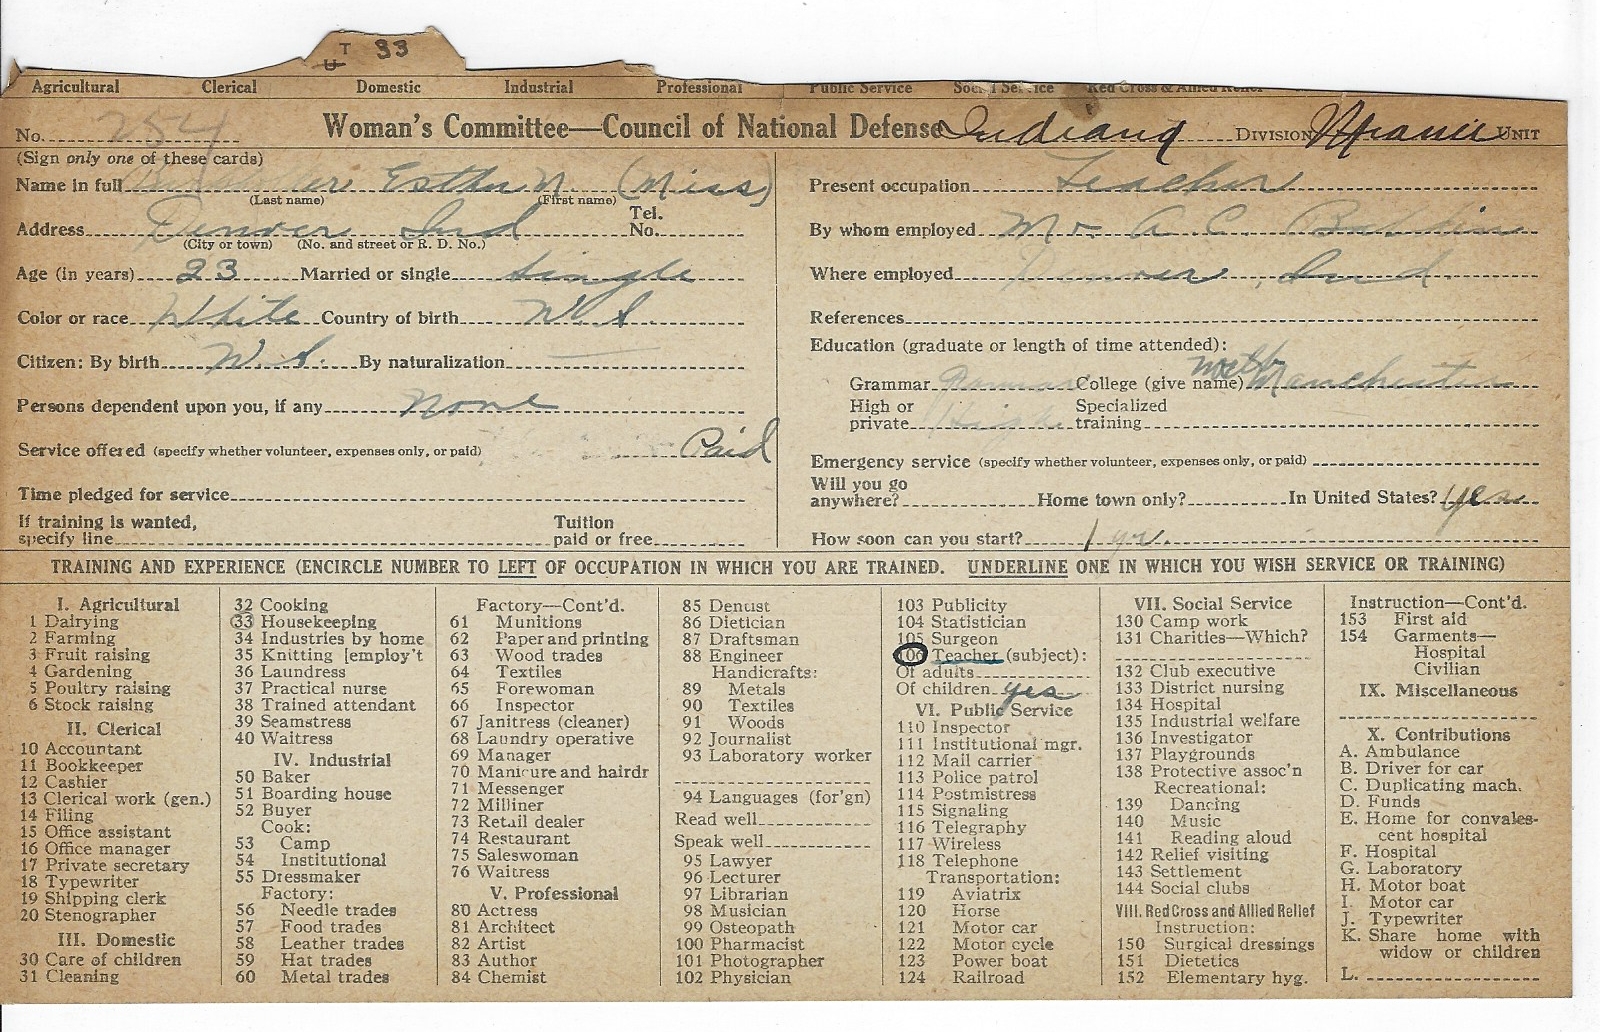 T
U 33
Agricultural Clerical Domestic Industrial Professional Public Service Social Service Red Cross & Allied Relief
No. 254 Woman's Committee—Council of National Defense Indiana DIVISION Miami UNIT
(Sign only one of these cards)
Name in full Esther N. (Miss)
(Last name) (First name)
Address Denver Ind Tel. No.
(City or town) (No. and street or R. D. No.)
Age (in years) 23 Married or single single
Color or race White Country of birth U. S.
Citizen: By birth U. S. By naturalization
Persons dependent upon you, if any none
Service offered (specify whether volunteer, expenses only, or paid) Paid
Time pledged for service
If training is wanted, specify line Tuition paid or free
Present occupation Teacher
By whom employed Mr A. C.
Where employed Denver, Ind.
References
Education (graduate or length of time attended):
Grammar College (give name) North Manchester
High or private High Specialized training
Emergency service (specify whether volunteer, expenses only, or paid)
Will you go anywhere? Home town only? In United States? yes
How soon can you start? 1 yr.
TRAINING AND EXPERIENCE (ENCIRCLE NUMBER TO LEFT OF OCCUPATION IN WHICH YOU ARE TRAINED. UNDERLINE ONE IN WHICH YOU WISH SERVICE OR TRAINING)
I. Agricultural
1 Dairying
2 Farming
3 Fruit raising
4 Gardening
5 Poultry raising
6 Stock raising
II. Clerical
10 Accountant
11 Bookkeeper
12 Cashier
13 Clerical work (gen.)
14 Filing
15 Office assistant
16 Office manager
17 Private secretary
18 Typewriter
19 Shipping clerk
20 Stenographer
III. Domestic
30 Care of children
31 Cleaning
32 Cooking
33 Housekeeping
34 Industries by home
35 Knitting [employ't
36 Laundress
37 Practical nurse
38 Trained attendant
39 Seamstress
40 Waitress
IV. Industrial
50 Baker
51 Boarding house
52 Buyer
Cook:
53 Camp
54 Institutional
55 Dressmaker
Factory:
56 Needle trades
57 Food trades
58 Leather trades
59 Hat trades
60 Metal trades
Factory—Cont'd.
61 Munitions
62 Paper and printing
63 Wood trades
64 Textiles
65 Forewoman
66 Inspector
67 Janitress (cleaner)
68 Laundry operative
69 Manager
70 Manicure and hairdr
71 Messenger
72 Milliner
73 Retail dealer
74 Restaurant
75 Saleswoman
76 Waitress
V. Professional
80 Actress
81 Architect
82 Artist
83 Author
84 Chemist
85 Dentist
86 Dietician
87 Draftsman
88 Engineer
Handicrafts:
89 Metals
90 Textiles
91 Woods
92 Journalist
93 Laboratory worker
94 Languages (for'gn)
Read well
Speak well
95 Lawyer
96 Lecturer
97 Librarian
98 Musician
99 Osteopath
100 Pharmacist
101 Photographer
102 Physician
103 Publicity
104 Statistician
105 Surgeon
106 Teacher (subject):
Of adults
Of children yes
VI. Public Service
110 Inspector
111 Institutional mgr.
112 Mail carrier
113 Police patrol
114 Postmistress
115 Signaling
116 Telegraphy
117 Wireless
118 Telephone
Transportation:
119 Aviatrix
120 Horse
121 Motor car
122 Motor cycle
123 Power boat
124 Railroad
VII. Social Service
130 Camp work
131 Charities—Which?
132 Club executive
133 District nursing
134 Hospital
135 Industrial welfare
136 Investigator
137 Playgrounds
138 Protective assoc'n
Recreational:
139 Dancing
140 Music
141 Reading aloud
142 Relief visiting
143 Settlement
144 Social clubs
VIII. Red Cross and Allied Relief
Instruction:
150 Surgical dressings
151 Dietetics
152 Elementary hyg.
Instruction—Cont'd.
153 First aid
154 Garments—
Hospital
Civilian
IX. Miscellaneous
X. Contributions
A. Ambulance
B. Driver for car
C. Duplicating mach.
D. Funds
E. Home for convales-
cent hospital
F. Hospital
G. Laboratory
H. Motor boat
I. Motor car
J. Typewriter
K. Share home with
widow or children
L.